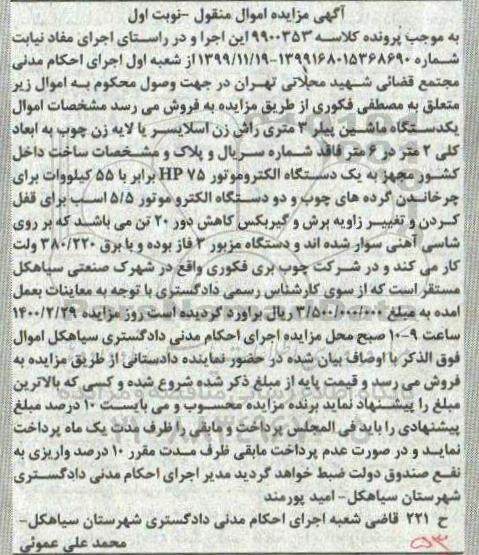 آگهی مزایده اموال منقول -نوبت اول
به موجب پرونده کلاسه ۹۹۰۰۳۵۳ این اجرا و در راستای اجرای مفاد نیابت
شماره ۱۳۹۹۱۶۸۰۱۵۳۶۸۶۹۰-۱۳۹۹/۱۱/۱۹ از شعبه اول اجرای احکام مدنی
مجتمع قضائی شهید محلاتی تهران در جهت وصول محکوم به اموال زیر
متعلق به مصطفی فکوری از طریق مزایده به فروش می رسد مشخصات اموال
یکدستگاه ماشین پیلر ۳ متری راش زن اسلایسر یا لایه زن چوب به ابعاد
کلی ۲ متر در ۶ متر فاقد شماره سریال و پلاک و مشخصات ساخت داخل
کشور مجهز به یک دستگاه الکتروموتور ۷۵ HP برابر با ۵۵ کیلووات برای
چرخاندن گرده های چوب و دو دستگاه الکترو موتور ۵/۵ اسب برای قفل
کردن و تغییر زاویه برش و گیربکس کاهش دور ۲۰ تن می باشد که بر روی
شاسی آهنی سوار شده اند و دستگاه مزبور ۳ فاز بوده و با برق ۳۸۰/۲۲۰ ولت
کار می کند و در شرکت چوب بری فکوری واقع در شهرک صنعتی سیاهکل
مستقر است که از سوی کارشناس رسمی دادگستری با توجه به معاینات بعمل
امده به مبلغ ۳/۵۰۰/۰۰۰/۰۰۰ ریال براورد گردیده است روز مزایده ۱۴۰۰/۲/۲۹
ساعت ۹-۱۰ صبح محل مزایده اجرای احکام مدنی دادگستری سیاهکل اموال
فوق الذکر با اوصاف بیان شده در حضور نماینده دادستانی از طریق مزایده به
فروش می رسد و قیمت پایه از مبلغ ذکر شده شروع شده و کسی که بالاترین
مبلغ را پیشنهاد نماید برنده مزایده محسوب و می بایست ۱۰ درصد مبلغ
پیشنهادی را باید فی المجلس پرداخت و مابقی را ظرف مدت یک ماه پرداخت
نماید و در صورت عدم پرداخت مابقی ظرف مدت مقرر ۱۰ درصد واریزی به
نفع صندوق دولت ضبط خواهد گردید مدیر اجرای احکام مدنی دادگستری
شهرستان سیاهکل- امید پورمند
ح ۲۲۱ قاضی شعبه اجرای احکام مدنی دادگستری شهرستان سیاهکل-
محمد علی عموئی
۵۳